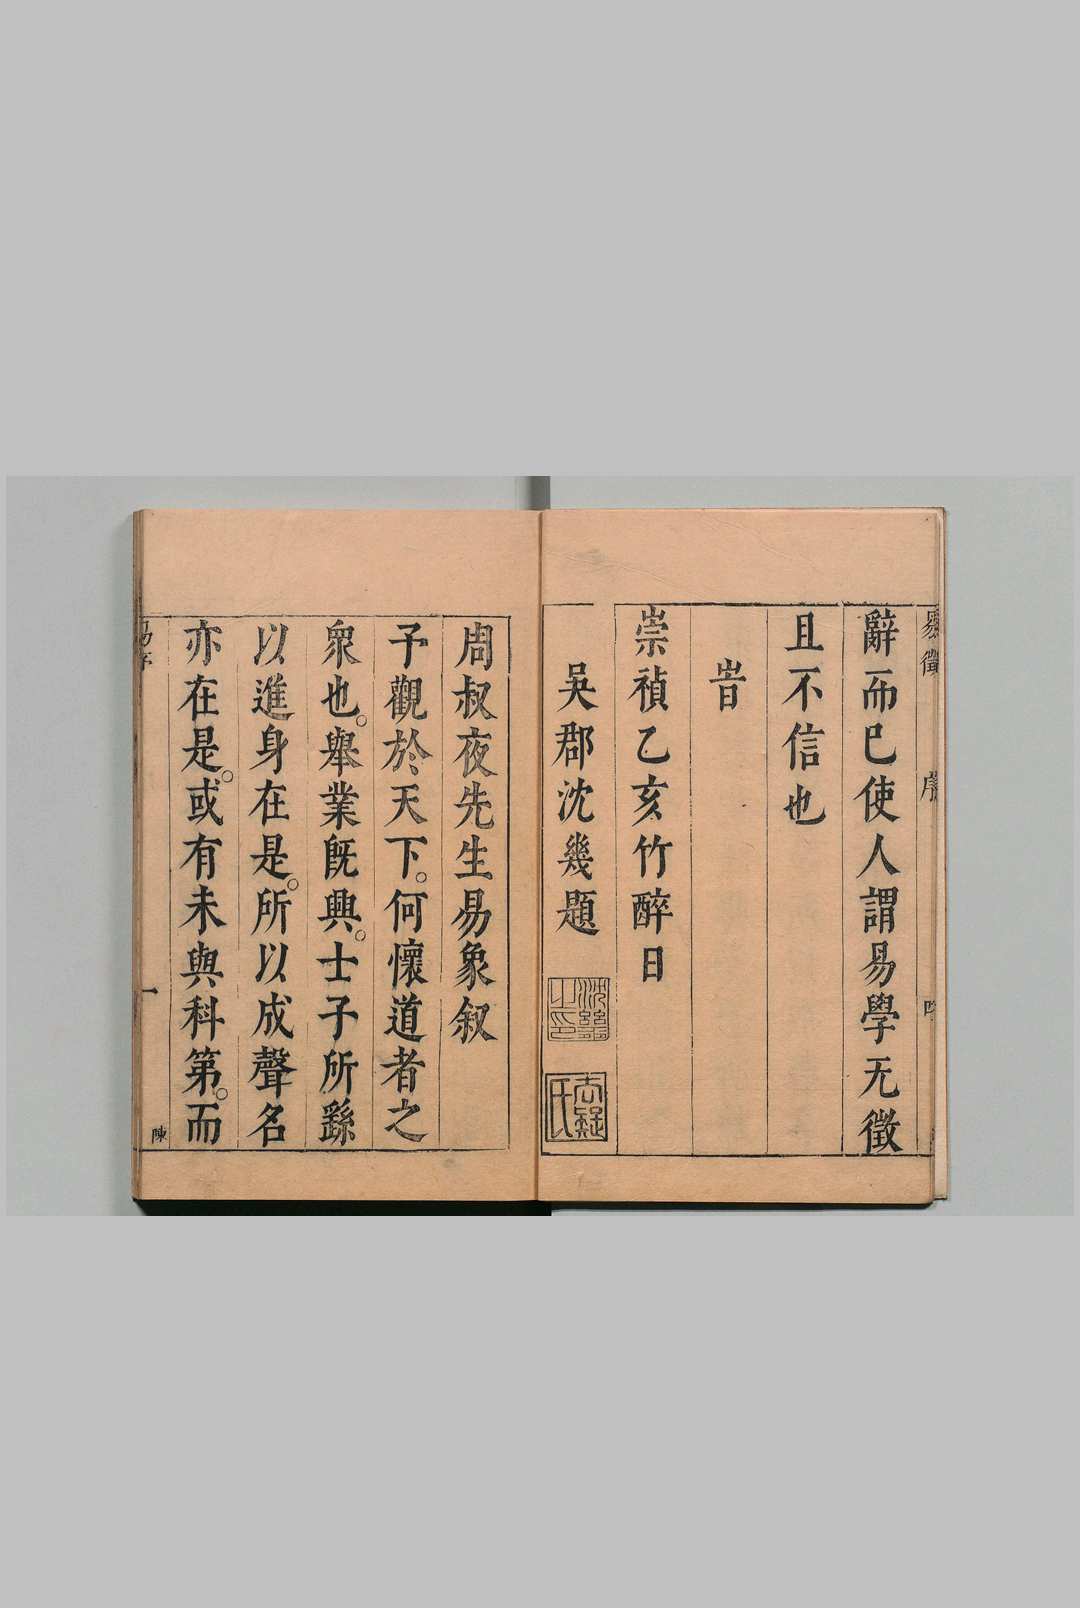 辭而已使人謂易學无徵
且不信也
旹
崇禎乙亥竹醉日
吳郡沈幾題
沈幾之印
去疑氏
周叔夜先生易象叙
予觀於天下。何懷道者之
衆也。舉業既興。士子所繇
以進身在是。所以成聲名
亦在是。或有未與科第。而
一
陳